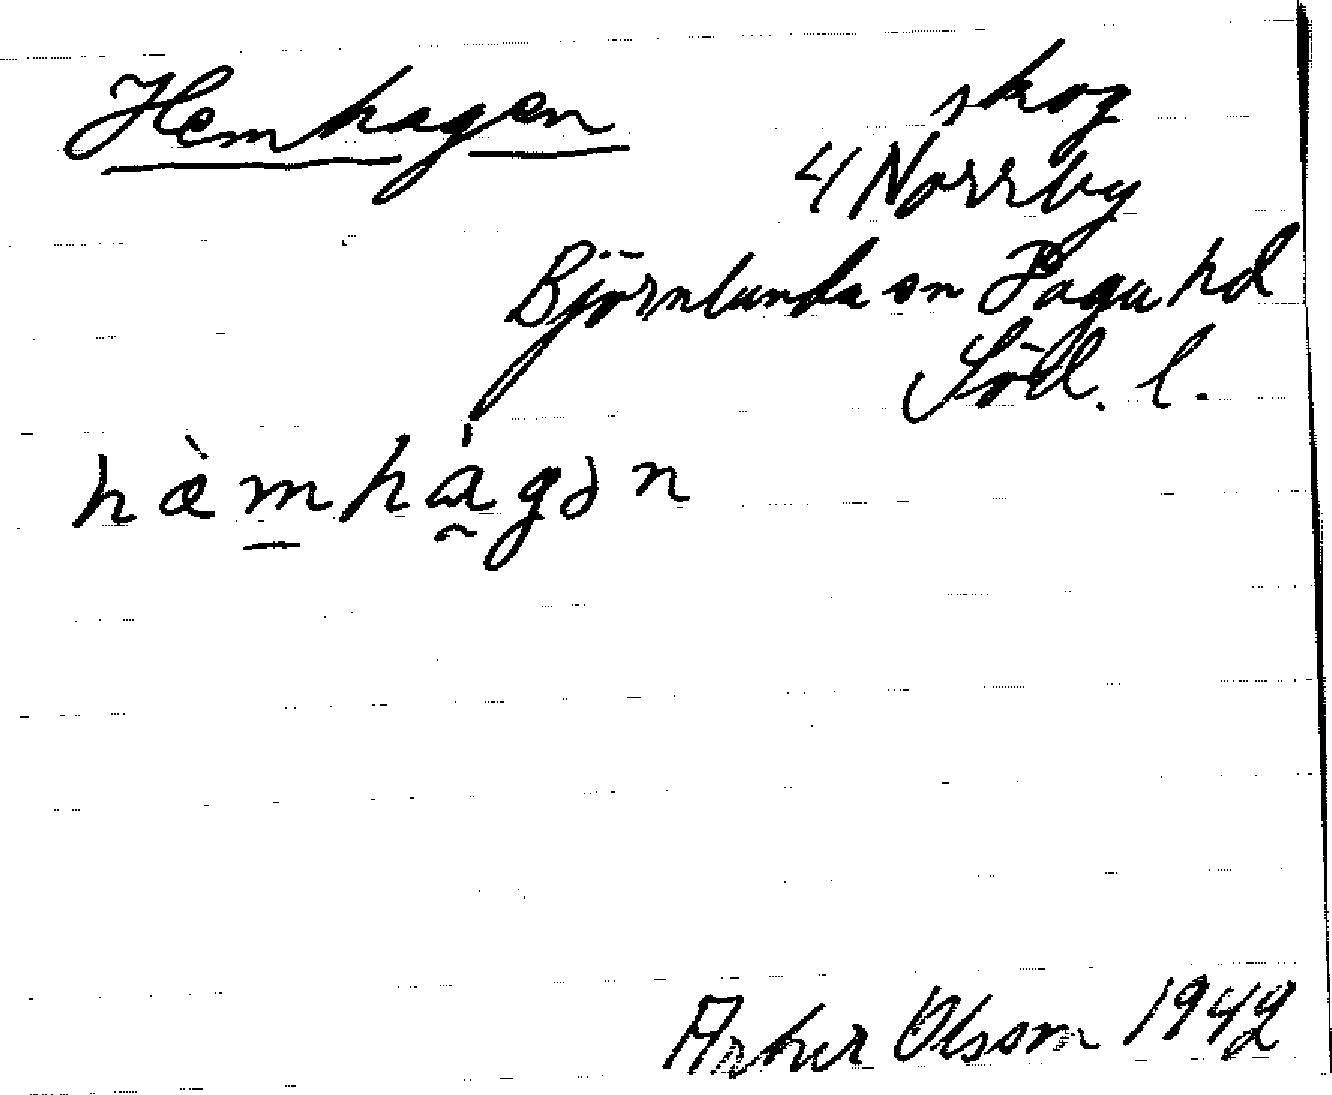 Hemhagen
skog
4 Norrby
Björnlunda sn Daga hd
Söd. l.
hæ̀m̲hà̰gən
Artur Olsson 1942